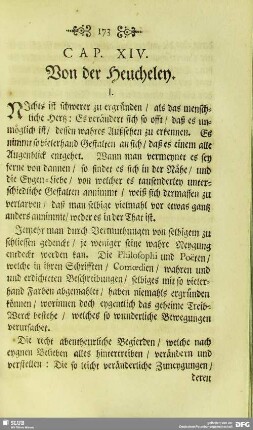 173
CAP. XIV.
Von der Heucheley.
I.
NIchts ist schwerer zu ergründen / als das mensch-
liche Hertz: Es verändert sich so offt / daß es un-
möglich ist / dessen wahres Aussehen zu erkennen. Es
nimmt so vielerhand Gestalten an sich / daß es einem alle
Augenblick entgehet. Wann man vermeynet es sey
ferne von dannen / so findet es sich in der Nähe / und
die Eygen-Liebe / von welcher es tausenderley unter-
schiedliche Gestalten annimmt / weiß sich dermassen zu
verlarven / daß man selbige vielmahl vor etwas gantz
anders annimmt / weder es in der That ist.
Jemehr man durch Vermuthungen von selbigem zu
schliessen gedenckt / je weniger seine wahre Neygung
entdeckt werden kan. Die Philosophi und Poëten /
welche in ihren Schrifften / Comœdien / wahren und
und erdichteten Beschreibungen / selbiges mit so vieler-
hand Farben abgemahlet / haben niemahls ergründen
können / worinnen doch eygentlich das geheime Treib-
Werck bestehe / welches so wunderliche Bewegungen
verursachet.
Die recht abentheurliche Begierden / welche nach
eygnen Belieben alles hintertreiben / verändern und
verstellen: Die so leicht veränderliche Zuneygungen /
deren
SLUB
DFG